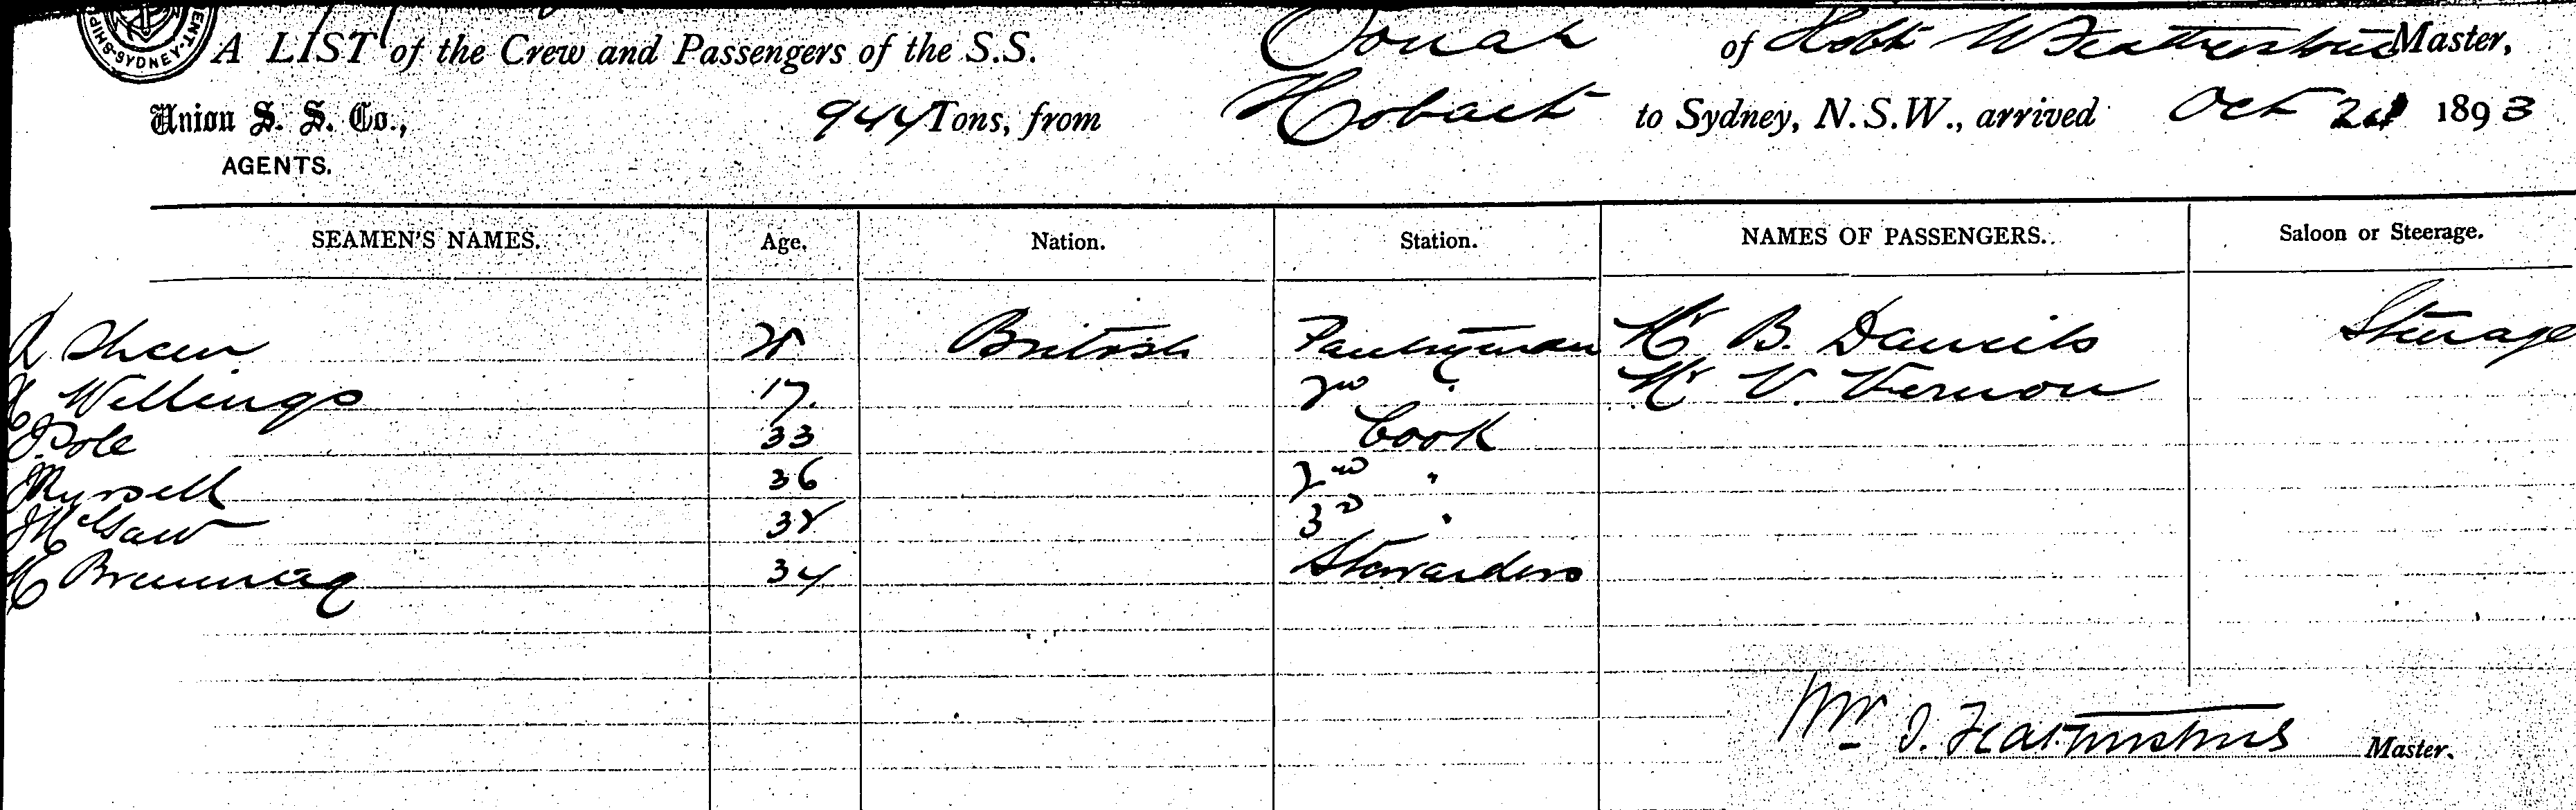 A LIST of the Crew and Passengers of the S.S. Oonah of Hobt W Featherstone Master,
Union S. S. Co., 944 Tons, from Hobart to Sydney, N.S.W., arrived Oct 21 1893
AGENTS.
SEAMEN'S NAMES. Age. Nation. Station. NAMES OF PASSENGERS. Saloon or Steerage.
Shew British Pantryman Mr B. Daniels Steerage
Wellings 17. 2nd " Mr V. Vernon
Pole 33 Cook
Myrsell 36 2nd "
J McGaw 38 3d "
34 Stewardess
Wm J. Featherstone Master.